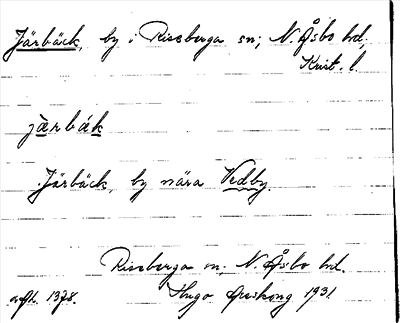 Järbäck, by i Riseberga sn; N. Åsbo hd,
Krist. l.
jærbæk
Järbäck, by nära Vedby.
Riseberga sn. N. Åsbo hd.
Hugo Areskoug 1931.
afsk. 1378.